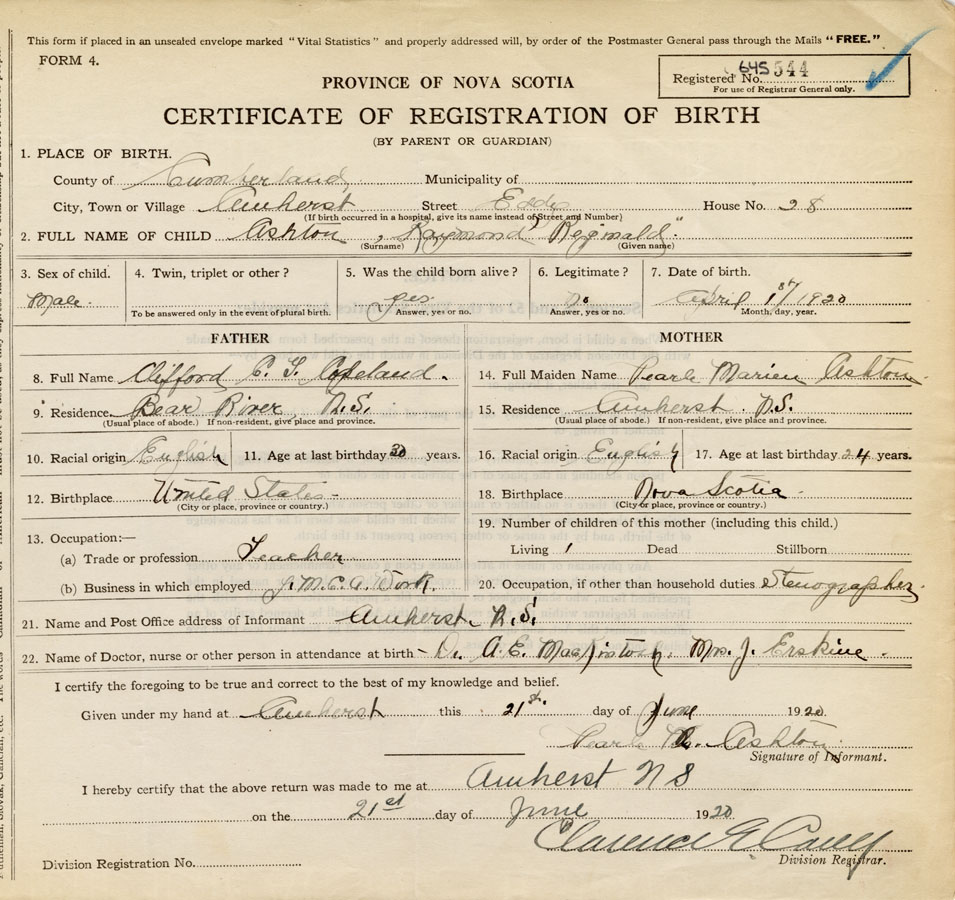 This form if placed in an unsealed envelope marked "Vital Statistics" and properly addressed will, by order of the Postmaster General pass through the Mails "FREE."
FORM 4.
Registered No. 645 544
For use of Registrar General only.
PROVINCE OF NOVA SCOTIA
CERTIFICATE OF REGISTRATION OF BIRTH
(BY PARENT OR GUARDIAN)
1. PLACE OF BIRTH.
County of Cumberland Municipality of
City, Town or Village Amherst Street Eddy House No. 28
(If birth occurred in a hospital, give its name instead of Street and Number)
2. FULL NAME OF CHILD Ashton, Raymond Reginald
(Surname) (Given name)
3. Sex of child. 4. Twin, triplet or other? 5. Was the child born alive? 6. Legitimate? 7. Date of birth.
Male. yes. No April 1st/1920
To be answered only in the event of plural birth. Answer, yes or no. Answer, yes or no. Month, day, year.
FATHER MOTHER
8. Full Name Clifford C. Copeland. 14. Full Maiden Name Pearle Marien Ashton
9. Residence. Bear River, N.S. 15. Residence Amherst N.S.
(Usual place of abode.) If non-resident, give place and province. (Usual place of abode.) If non-resident, give place and province.
10. Racial origin English 11. Age at last birthday 30 years. 16. Racial origin English 17. Age at last birthday 24 years.
12. Birthplace United States 18. Birthplace Nova Scotia
(City or place, province or country.) (City or place, province or country.)
13. Occupation:— 19. Number of children of this mother (including this child.)
(a) Trade or profession Teacher Living 1 Dead Stillborn
(b) Business in which employed Y.M.C.A. Work. 20. Occupation, if other than household duties Stenographer
21. Name and Post Office address of Informant Amherst N.S.
22. Name of Doctor, nurse or other person in attendance at birth – Dr. A. E. Mrs. J. Erskine.
I certify the foregoing to be true and correct to the best of my knowledge and belief.
Given under my hand at Amherst this 21st. day of June 1920.
Pearle M. Ashton
Signature of Informant.
I hereby certify that the above return was made to me at Amherst N S
on the 21st day of June 1920
Clarence E Casey
Division Registrar.
Division Registration No.